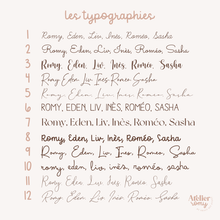 les typographies
1 Romy, Eden, Liv, Inès, Roméo, Sasha
2 Romy, Eden, Liv, Inès, Roméo, Sasha
3 Romy, Eden, Liv, Inès, Roméo, Sasha
4 Romy, Eden, Liv, Inès, Roméo, Sasha
5 Romy, Eden, Liv, Inès, Roméo, Sasha
6 ROMY, EDEN, LIV, INÈS, ROMÉO, SASHA
7 Romy, Eden, Liv, Inès, Roméo, Sasha
8 Romy, Eden, Liv, Inès, Roméo, Sasha
9 Romy, Eden, Liv, Inès, Roméo, Sasha
10 romy, eden, liv, inès, roméo, sasha
11 Romy, Eden, Liv, Inès, Roméo, Sasha
12 Romy, Eden, Liv, Inès, Roméo, Sasha
Atelier
romy